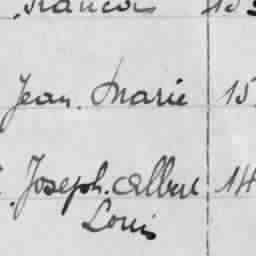 Francois 15
Jean Marie 15
Joseph. Albert 14
Louis